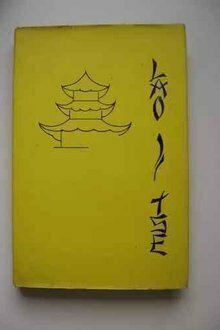 LAO
TSE